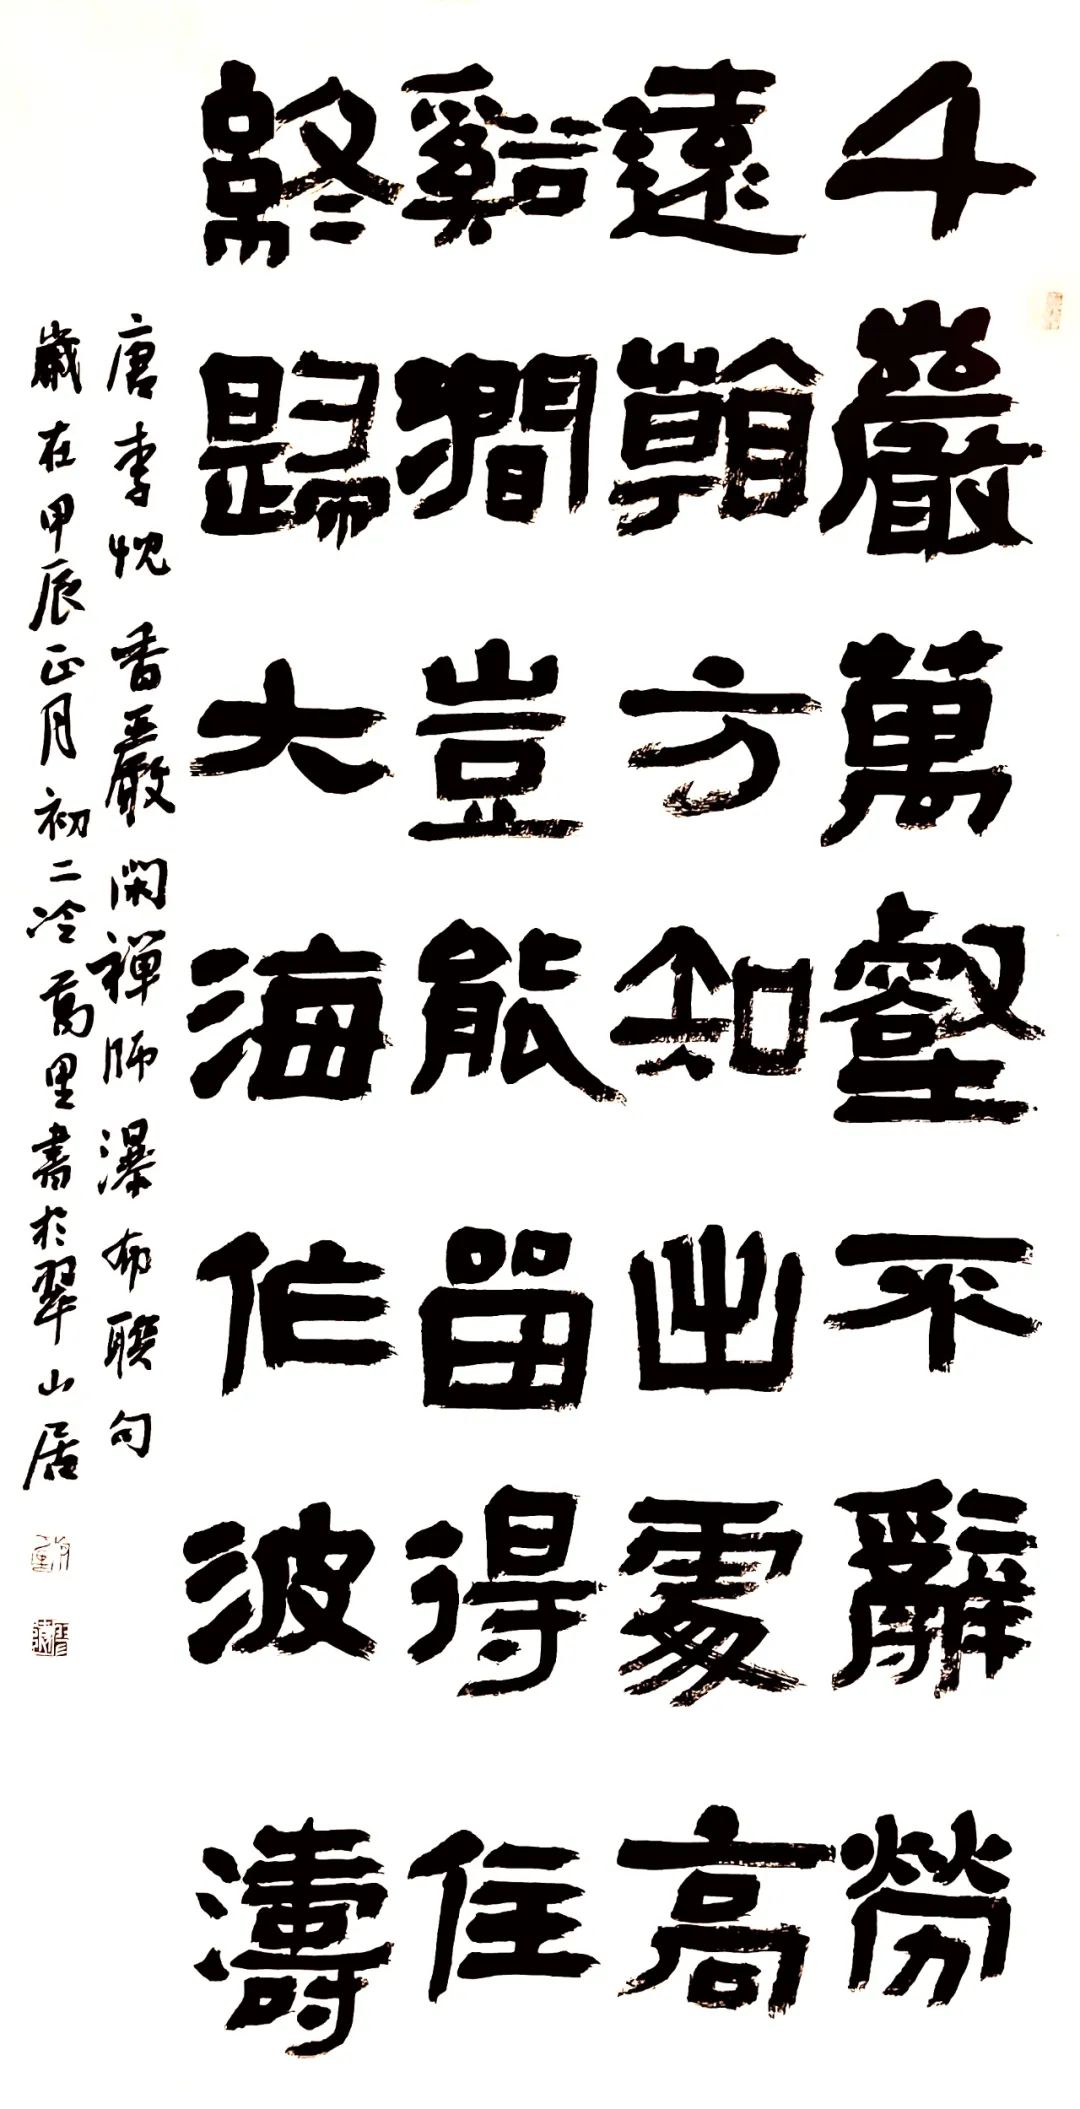 千巖萬壑不辭勞
遠看方知出處高
谿澗豈能留得住
終歸大海作波濤
唐李忱香嚴閑禪師瀑布聯句
歲在甲辰正月初二冷萬里書於翠山居